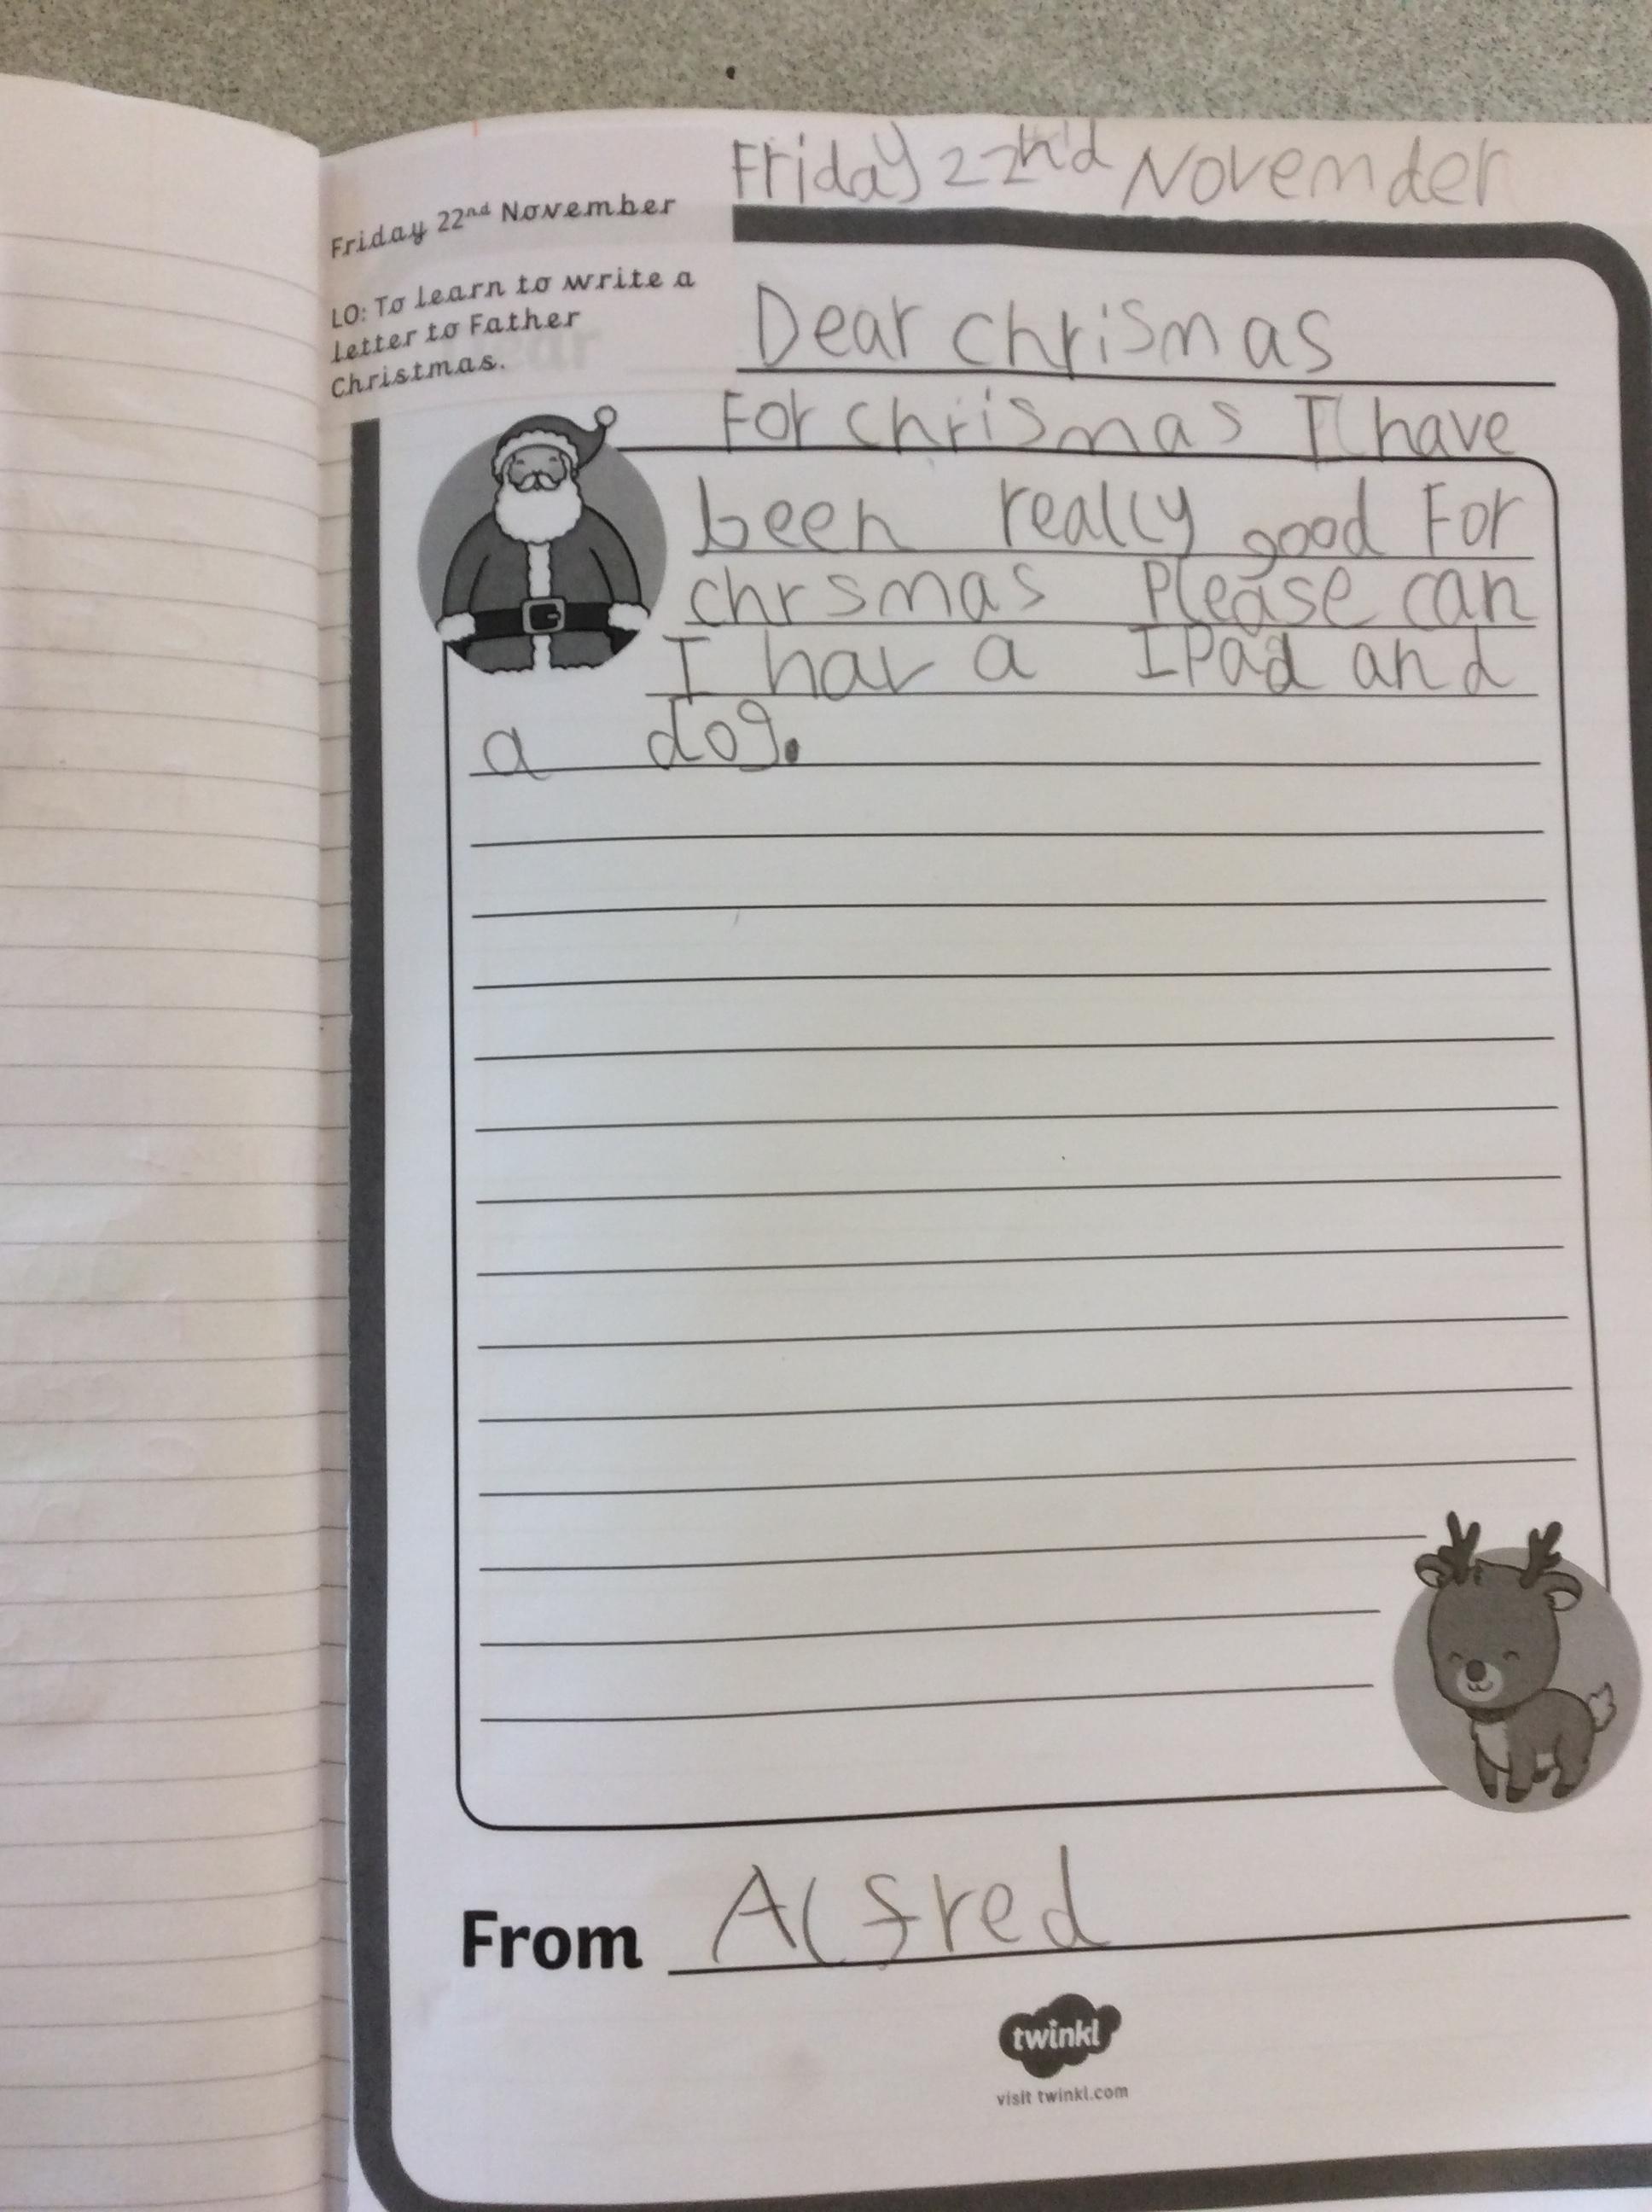 Friday 22nd November
LO: To learn to write a
letter to Father
Christmas.
Friday 22nd Novemder
Dear chrismas
For chrismas I have
been really good For
chrsmas Please can
I hav a IPad and
a dog.
From Alfred
twinkl
visit twinkl.com